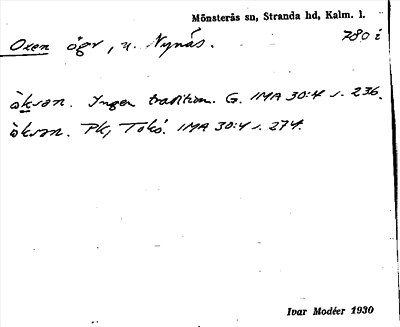 Mönsterås sn, Stranda hd, Kalm. l.
Oxen ögr, n. Nynäs. 780 i
òksən. Ingen tradition. G. IMA 30:4 s. 236.
òksən. Pk, Tokö. IMA 30:4 s. 274.
Ivar Modéer 1930